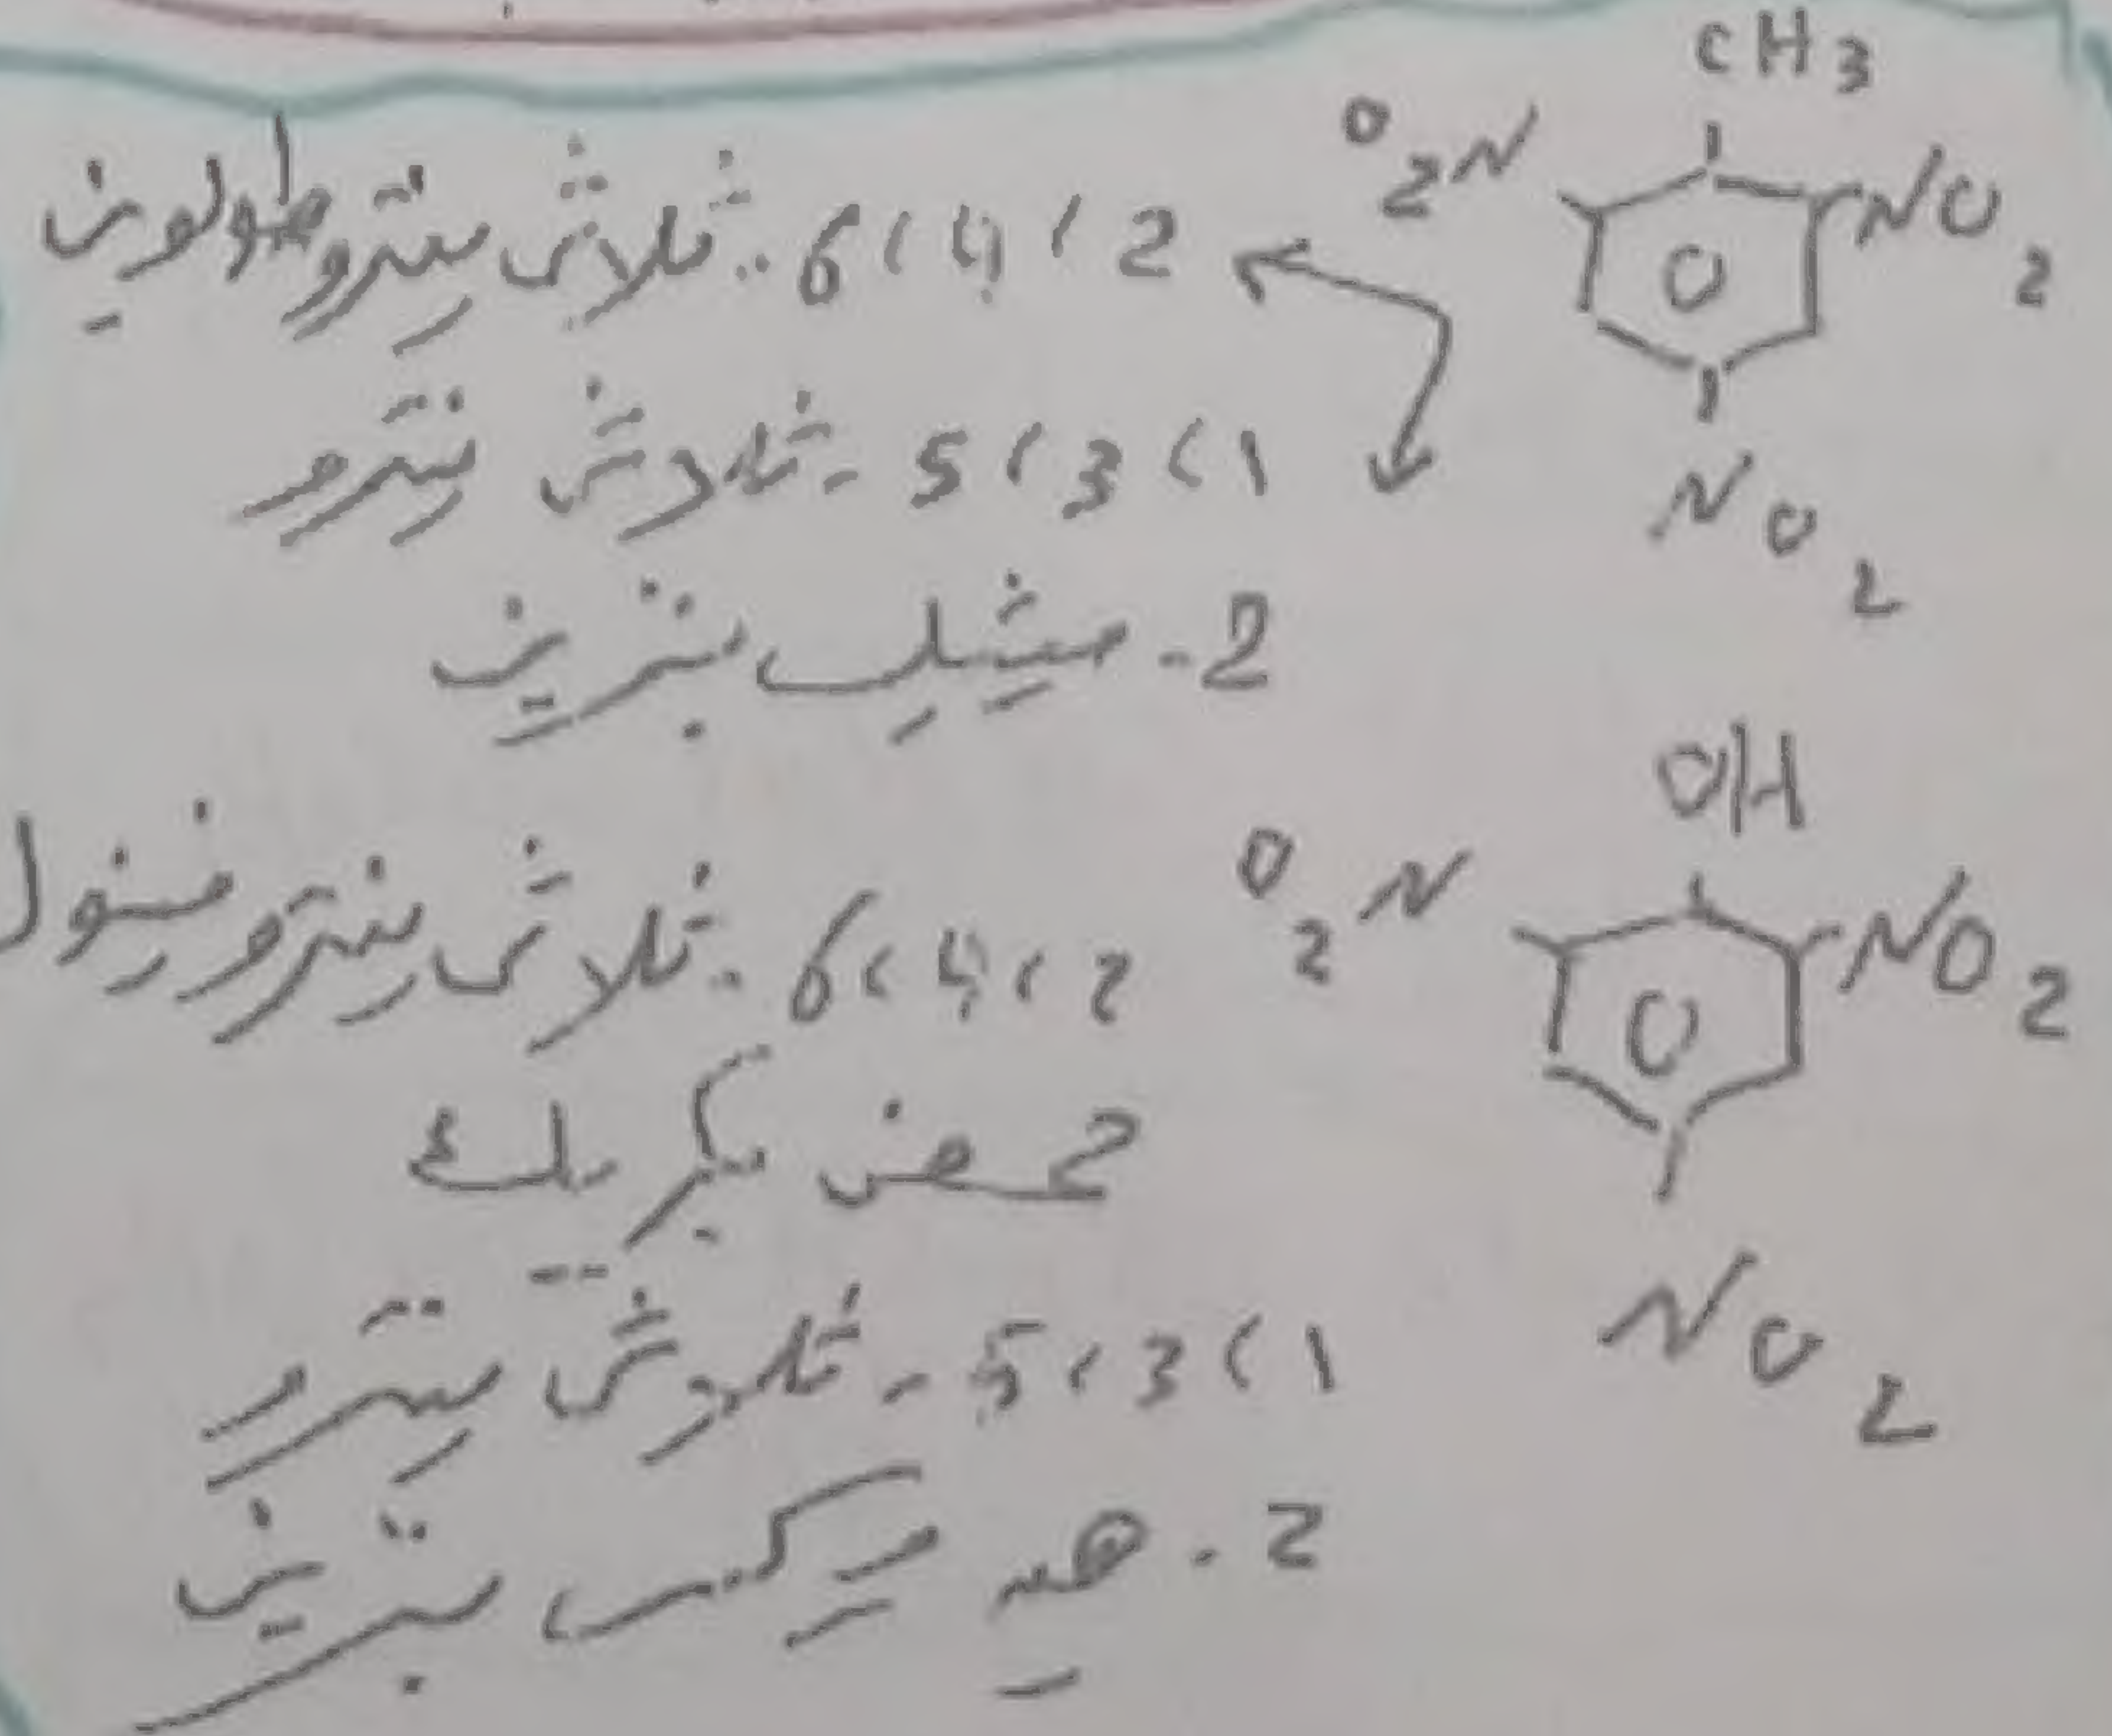 CH3
O2N
NO2
2، 4، 6 - ثلاثي نيترو طولوين
1، 3، 5 - ثلاثي نيترو
NO2
2 - ميثيل بنزين
OH
O2N
NO2
2، 4، 6 - ثلاثي نيترو فينول
حمض بكريك
1، 3، 5 - ثلاثي نيترو
NO2
2 - هيدروكسي بنزين